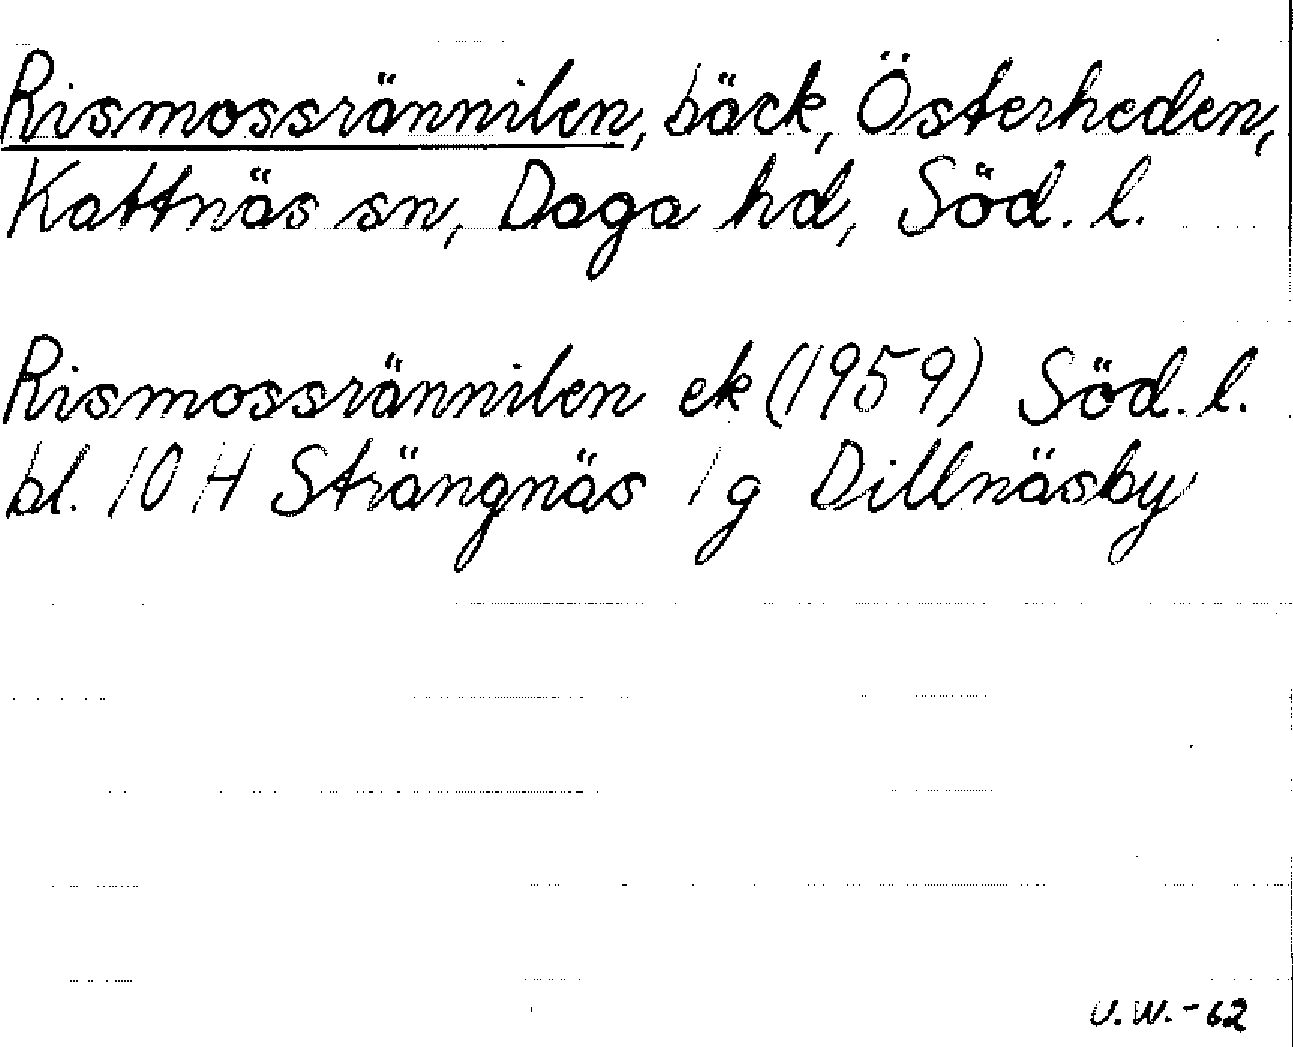 Rismossrännilen, bäck, Österheden,
Kattnäs sn, Daga hd, Söd. l.
Rismossrännilen ek (1959) Söd. l.
bl. 10 H Strängnäs 1 g Dillnäsby
U.W.-62